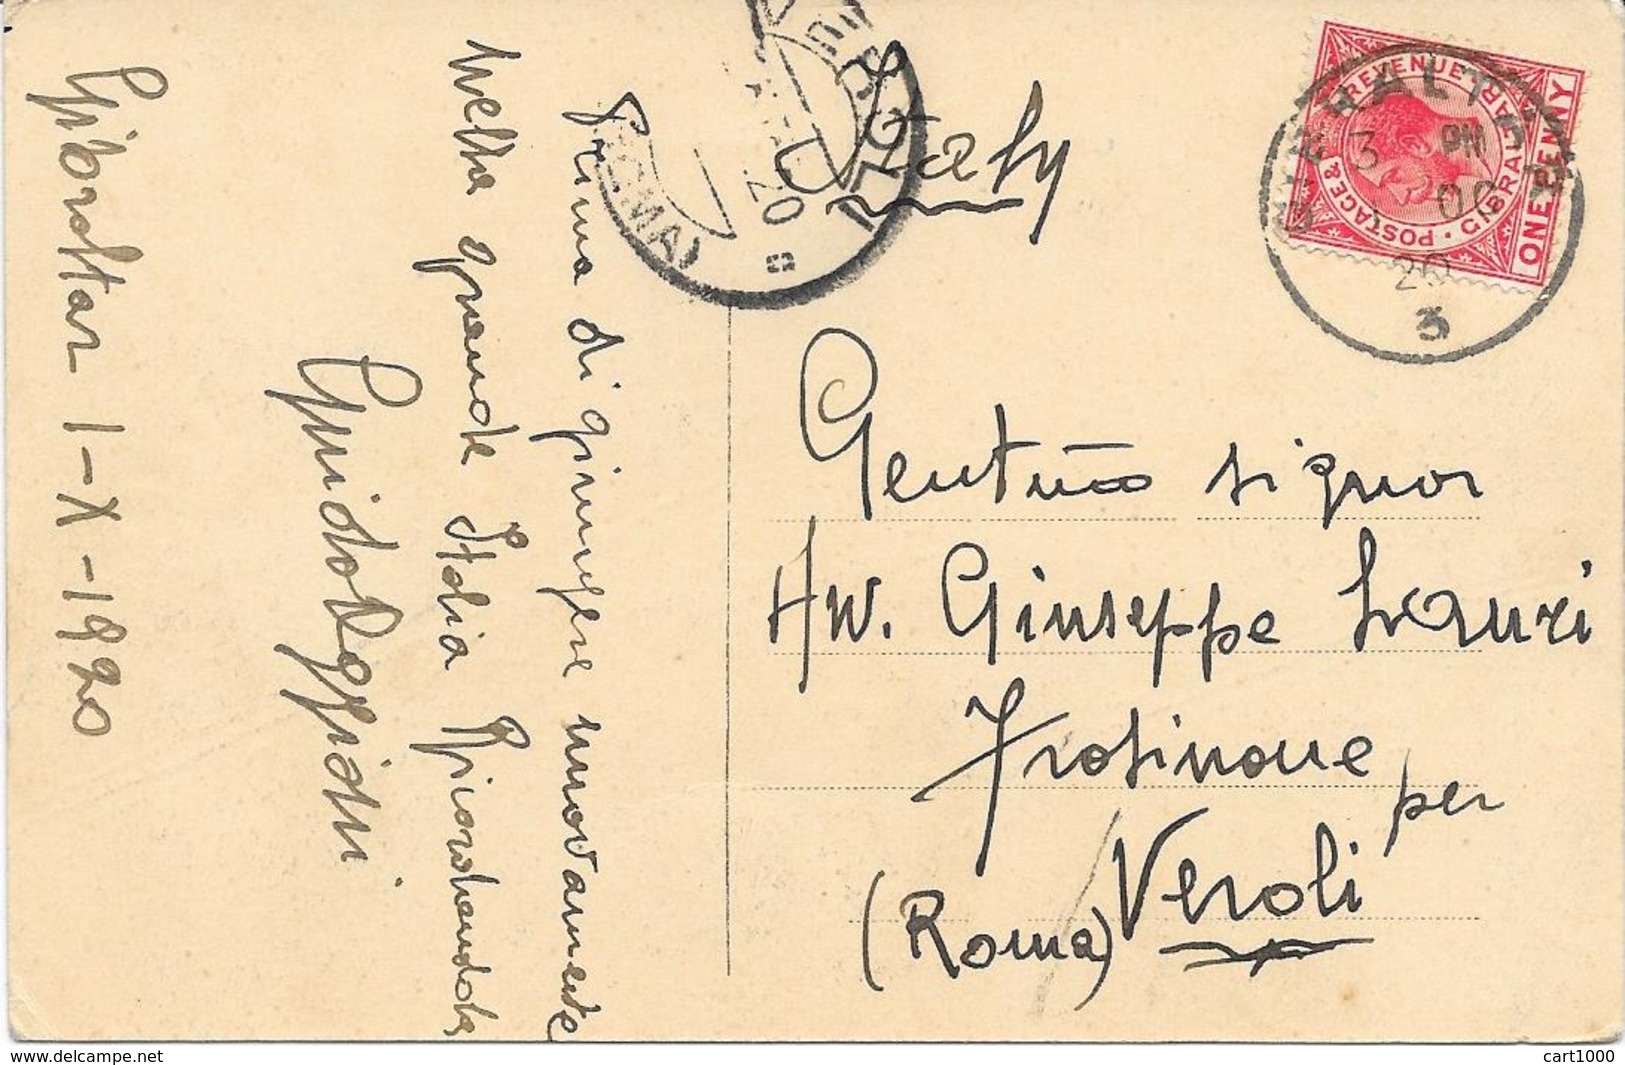 Gibraltar 1-X-1920
Prima di giungere nuovamente
nella grande Italia Ricordandola
Guido
Italy
VEROLI
20
(ROMA)
GIBRALTAR
3 PM
OC
20
3
POSTAGE & REVENUE
GIBRALTAR
ONE PENNY
Gent.mo signor
Avv. Giuseppe Lauri
Frosinone
per
(Roma) Veroli
www.delcampe.net
cart1000